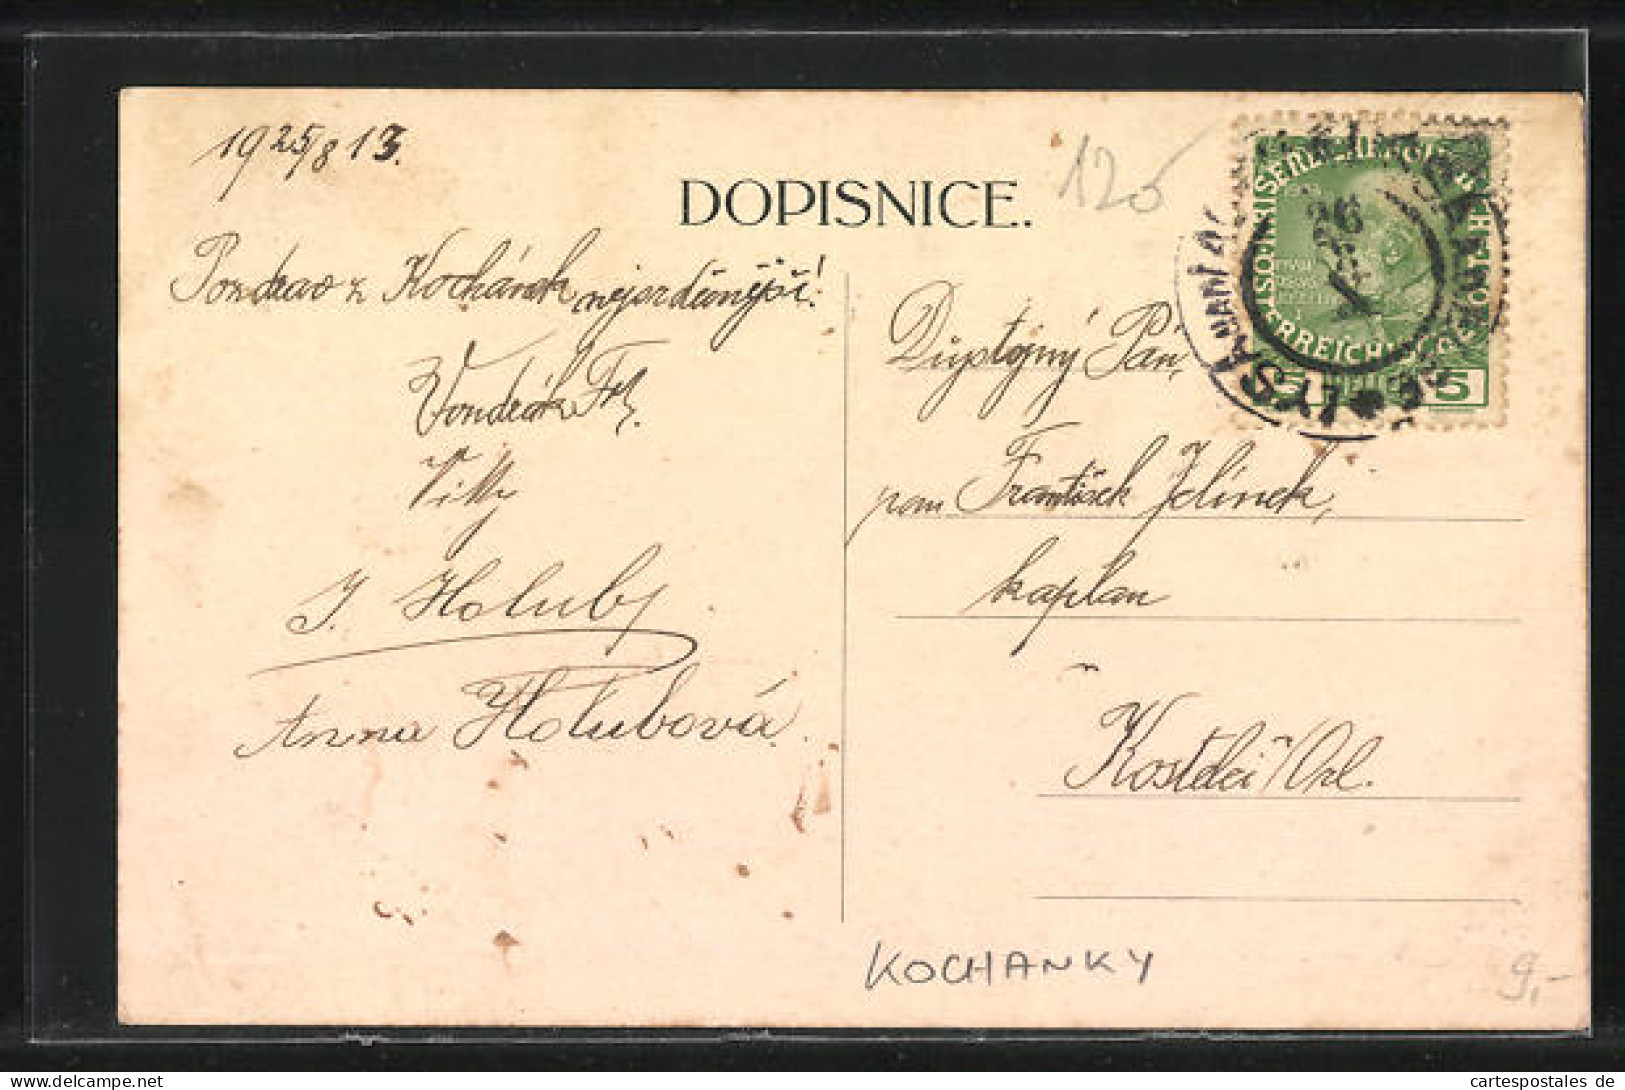 19 25/8 13.
DOPISNICE.
120
Pozdrav z Kochánek nejsrdečnější!
Vondrák Fr.
Villy
J. Holub
Anna Holubová.
Důstojný Pán,
pan František Jelínek,
kaplan
Kostelci n/Orl.
KOCHANKY
9,-
5
www.cartespostales.de